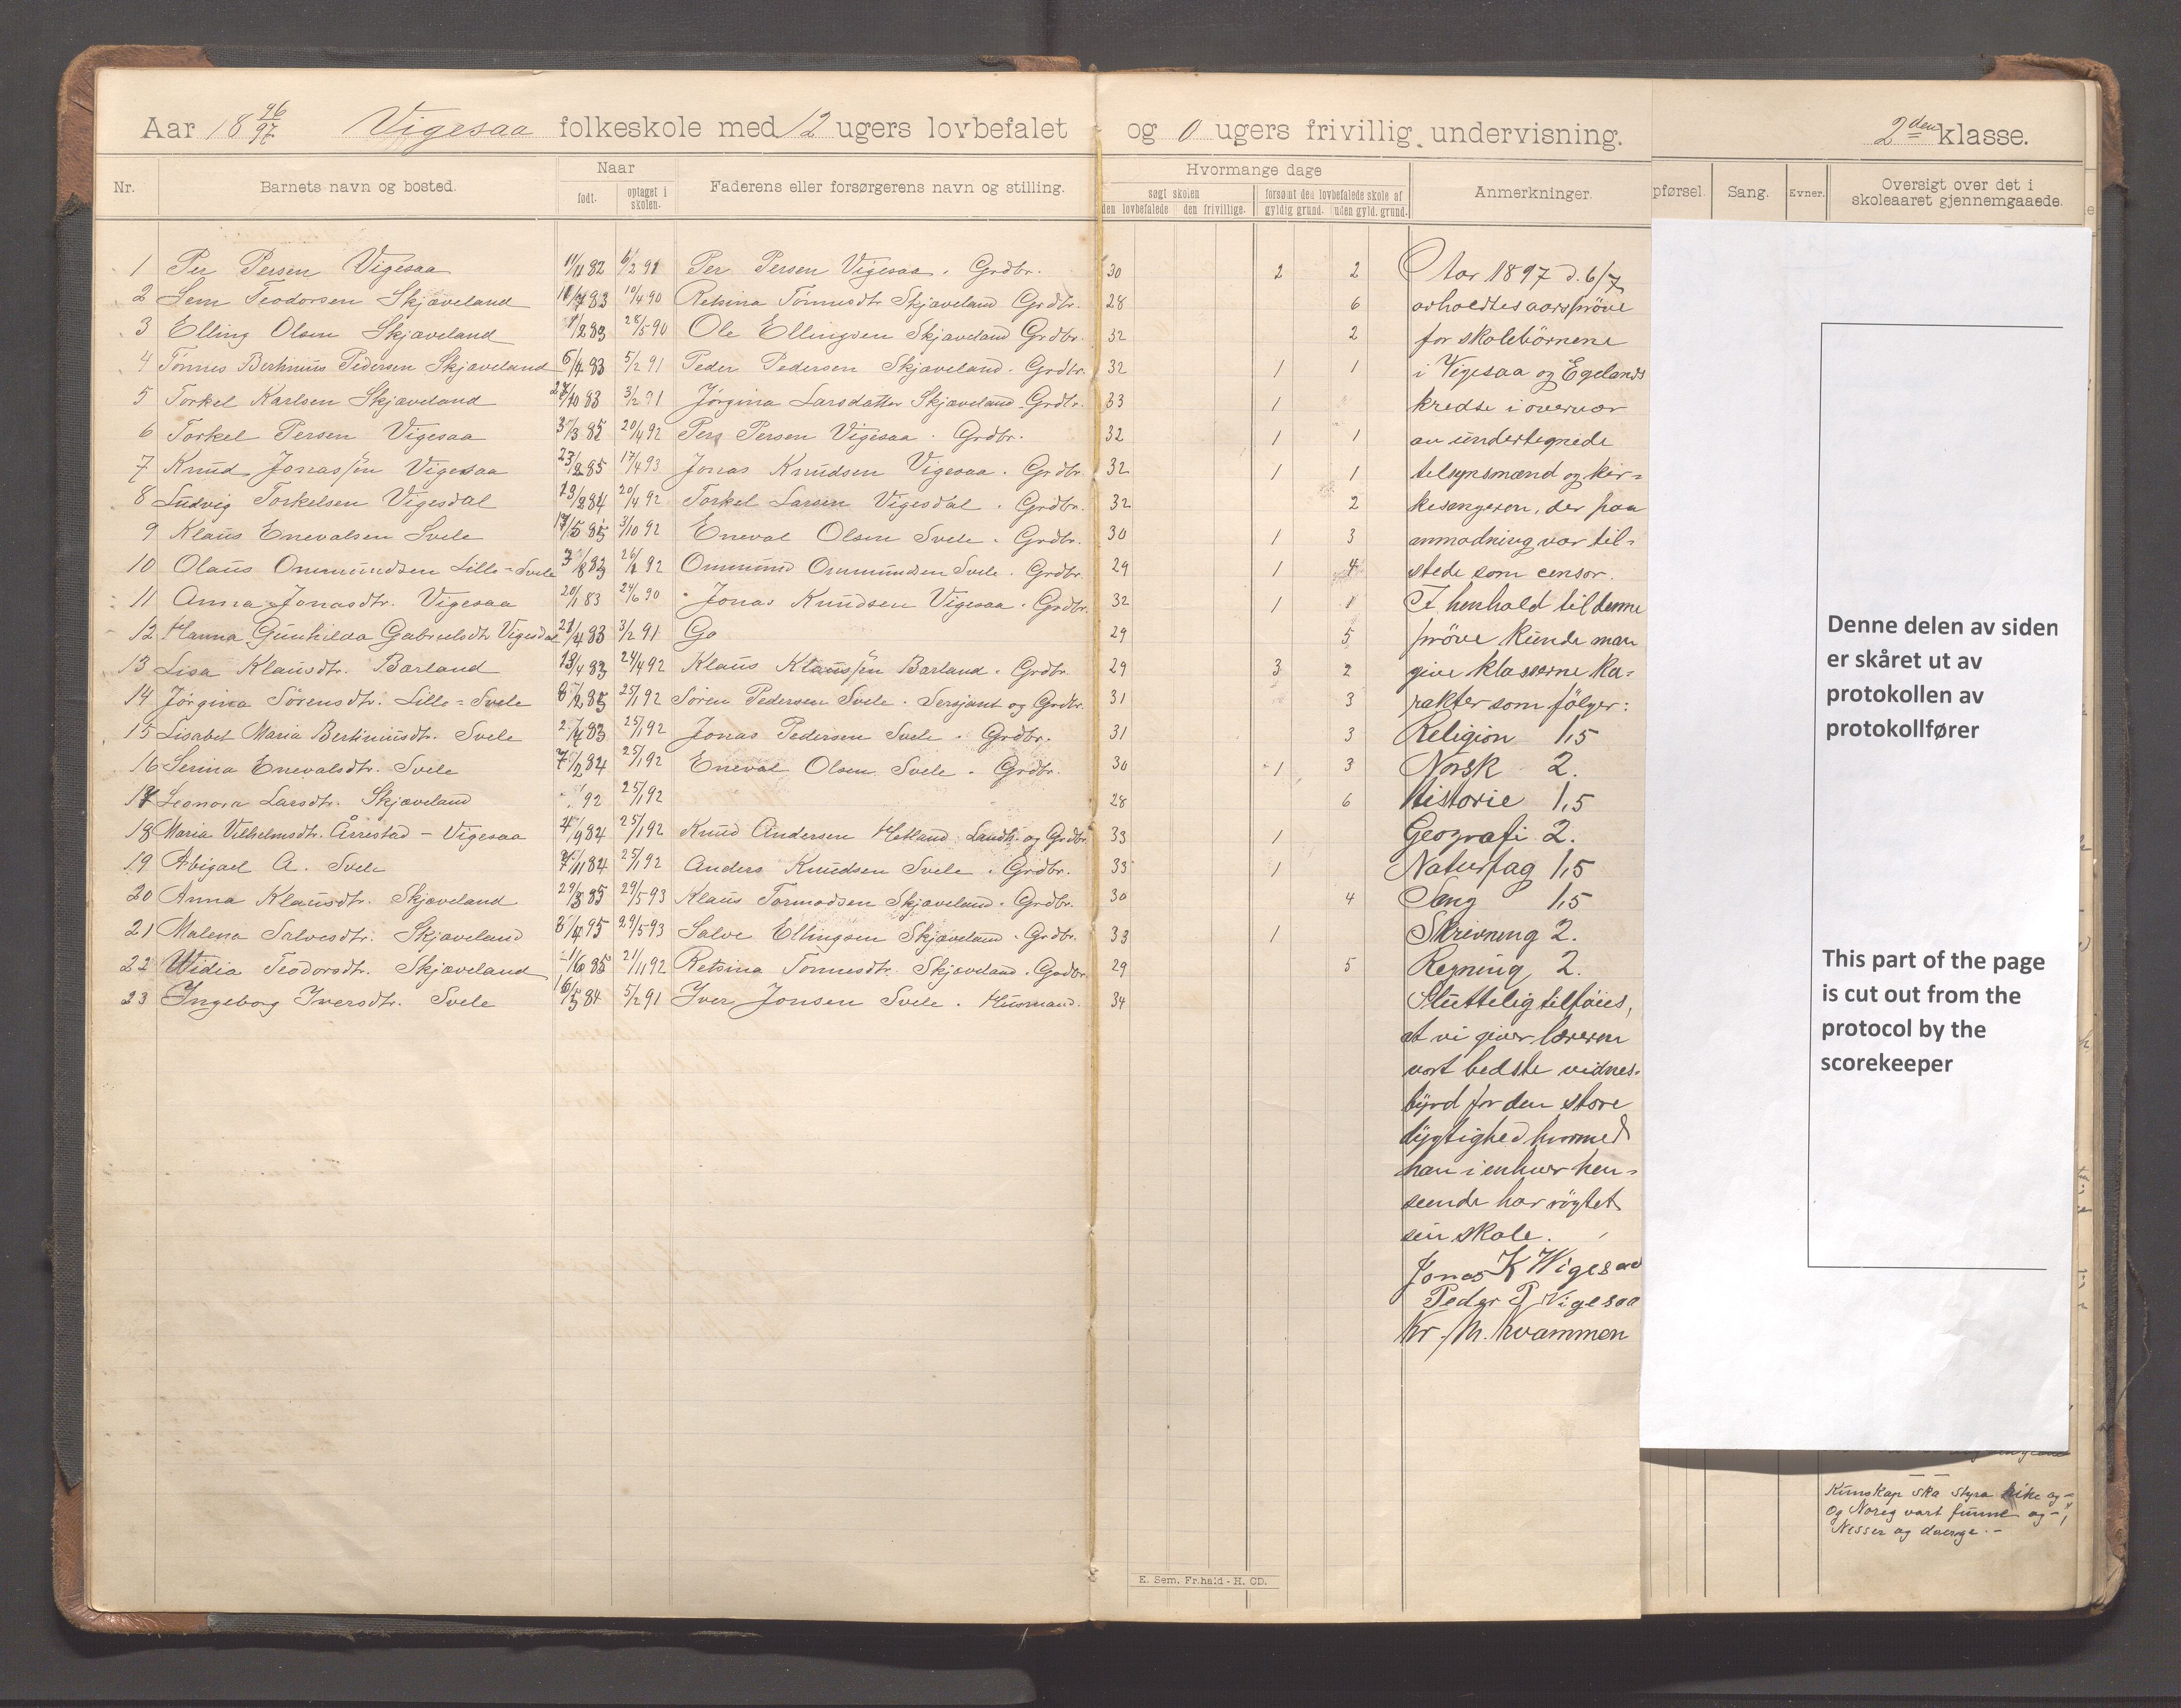 Aar 18 96/97 Vigesaa folkeskole med 12 ugers lovbefalet og 0 ugers frivillig undervisning. 2den klasse.
Nr. Barnets navn og bosted. Naar født. optaget i skolen. Faderens eller forsørgerens navn og stilling. Hvormange dage søgt skolen den lovbefalede den frivillige. forsømt den lovbefalede skole af gyldig grund. uden gyld. grund. Anmerkninger.
pførsel. Sang. Evner. Oversigt over det i skoleaaret gjennemgaaede.
1 Per Persen Vigesaa 11/11 82 6/2 91 Per Persen Vigesaa. Grdbr. 30 2 2
2 Sem Teodorsen Skjæveland 83 10/4 90 Retsina Tønnesdtr Skjæveland Grdbr. 28 6
3 Elling Olsen Skjæveland 83 28/5 90 Ole Ellingsen Skjæveland Grdbr. 32 2
4 Tønnes Bertinius Pedersen Skjæveland 6/4 83 5/2 91 Peder Pedersen Skjæveland. Grdbr. 32 1 1
5 Torkel Karlsen Skjæveland 83 3/2 91 Jørgina Larsdatter Skjæveland. Grdbr. 33 1
6 Torkel Persen Vigesaa 20/4 92 Per Persen Vigesaa. Grdbr. 32 1 1
7 Knud Jonassen Vigesaa 85 17/4 93 Jonas Knudsen Vigesaa. Grdbr. 32 1 1
8 Ludvig Torkelsen Vigesdal 84 20/4 92 Torkel Larsen Vigesdal. Grdbr. 32 2
9 Klaus Enevalsen Svele 17/5 85 3/10 92 Eneval Olsen Svele. Grdbr. 30 1 3
10 Olaus Ommundsen Lille=Svele 83 92 Ommund Ommundsen Svele. Grdbr. 29 1 4
11 Anna Jonasdtr. Vigesaa 20/1 83 24/6 90 Jonas Knudsen Vigesaa. Grdbr. 32 1 1
12 Hanna Gunhilda Gabrielsdtr Vigesdal 21/4 83 3/2 91 Ga 29 5
13 Lisa Klausdtr. Barland 13/4 83 24/4 92 Klaus Klaussen Barland. Grdbr. 29 3 2
14 Jørgina Sørensdtr. Lille=Svele 85 25/1 92 Søren Pedersen Svele. Sersjant og Grdbr. 31 3
15 Lisabet Maria Bertiniusdtr. Svele 83 25/1 92 Jonas Pedersen Svele. Grdbr. 31 3
16 Serina Enevalsdtr. Svele 7/2 84 25/1 92 Eneval Olsen Svele. Grdbr. 30 1 3
17 Leonora Larsdtr. Skjæveland 92 25/1 92 28 6
18 Maria Vilhelmsdtr. Årrestad - Vigesaa 4/9 84 25/1 92 Knud Andersen Hetland Landh. og Grdbr. 33 1
19 Abigael A. Svele 7/11 84 25/1 92 Anders Knudsen Svele. Grdbr. 33 1
20 Anna Klausdtr. Skjæveland 85 29/5 93 Klaus Tormodsen Skjæveland. Grdbr. 30 4
21 Malena Salvesdtr. Skjæveland 29/5 93 Salve Ellingsen Skjæveland. Grdbr. 33 1
22 Widia Teodorsdtr. Skjæveland 85 21/11 92 Retsina Tønnesdtr. Skjæveland. Grdbr. 29 5
23 Ingeborg Iversdtr. Svele 84 5/2 91 Iver Jonsen Svele. Husmand. 34
Aar 1897 d. 6/7
avholdtes aarsprøve
for skolebörnene
i Vigesaa og Egelands
kredse i overvær
av undertegnede
tilsynsmænd og kir=
kesangeren, der paa
anmodning var til=
stede som censor.
I henhold til denne
prøve kunde man
give klasserne ka=
rakter som fölger:
Religion 1,5
Norsk 2.
Historie 1,5
Geografi 2.
Naturfag 1,5
Sang 1,5
Skrivning 2.
Regning 2.
Sluttelig tilföies,
at vi giver læreren
vort bedste vidnes=
byrd for den store
dygtighed hvormed
han i enhver hen=
seende har røgtet
sin skole.
Jonas K Wigesaa
Peder P Vigesaa
Kr. M. Kvammen
E. Sem, Fr.hald - H. CD.
Denne delen av siden
er skåret ut av
protokollen av
protokollfører
This part of the page
is cut out from the
protocol by the
scorekeeper
Kunskap ska styra rike og -
Og Noreg vart funne og -
Nesser og dverge. -